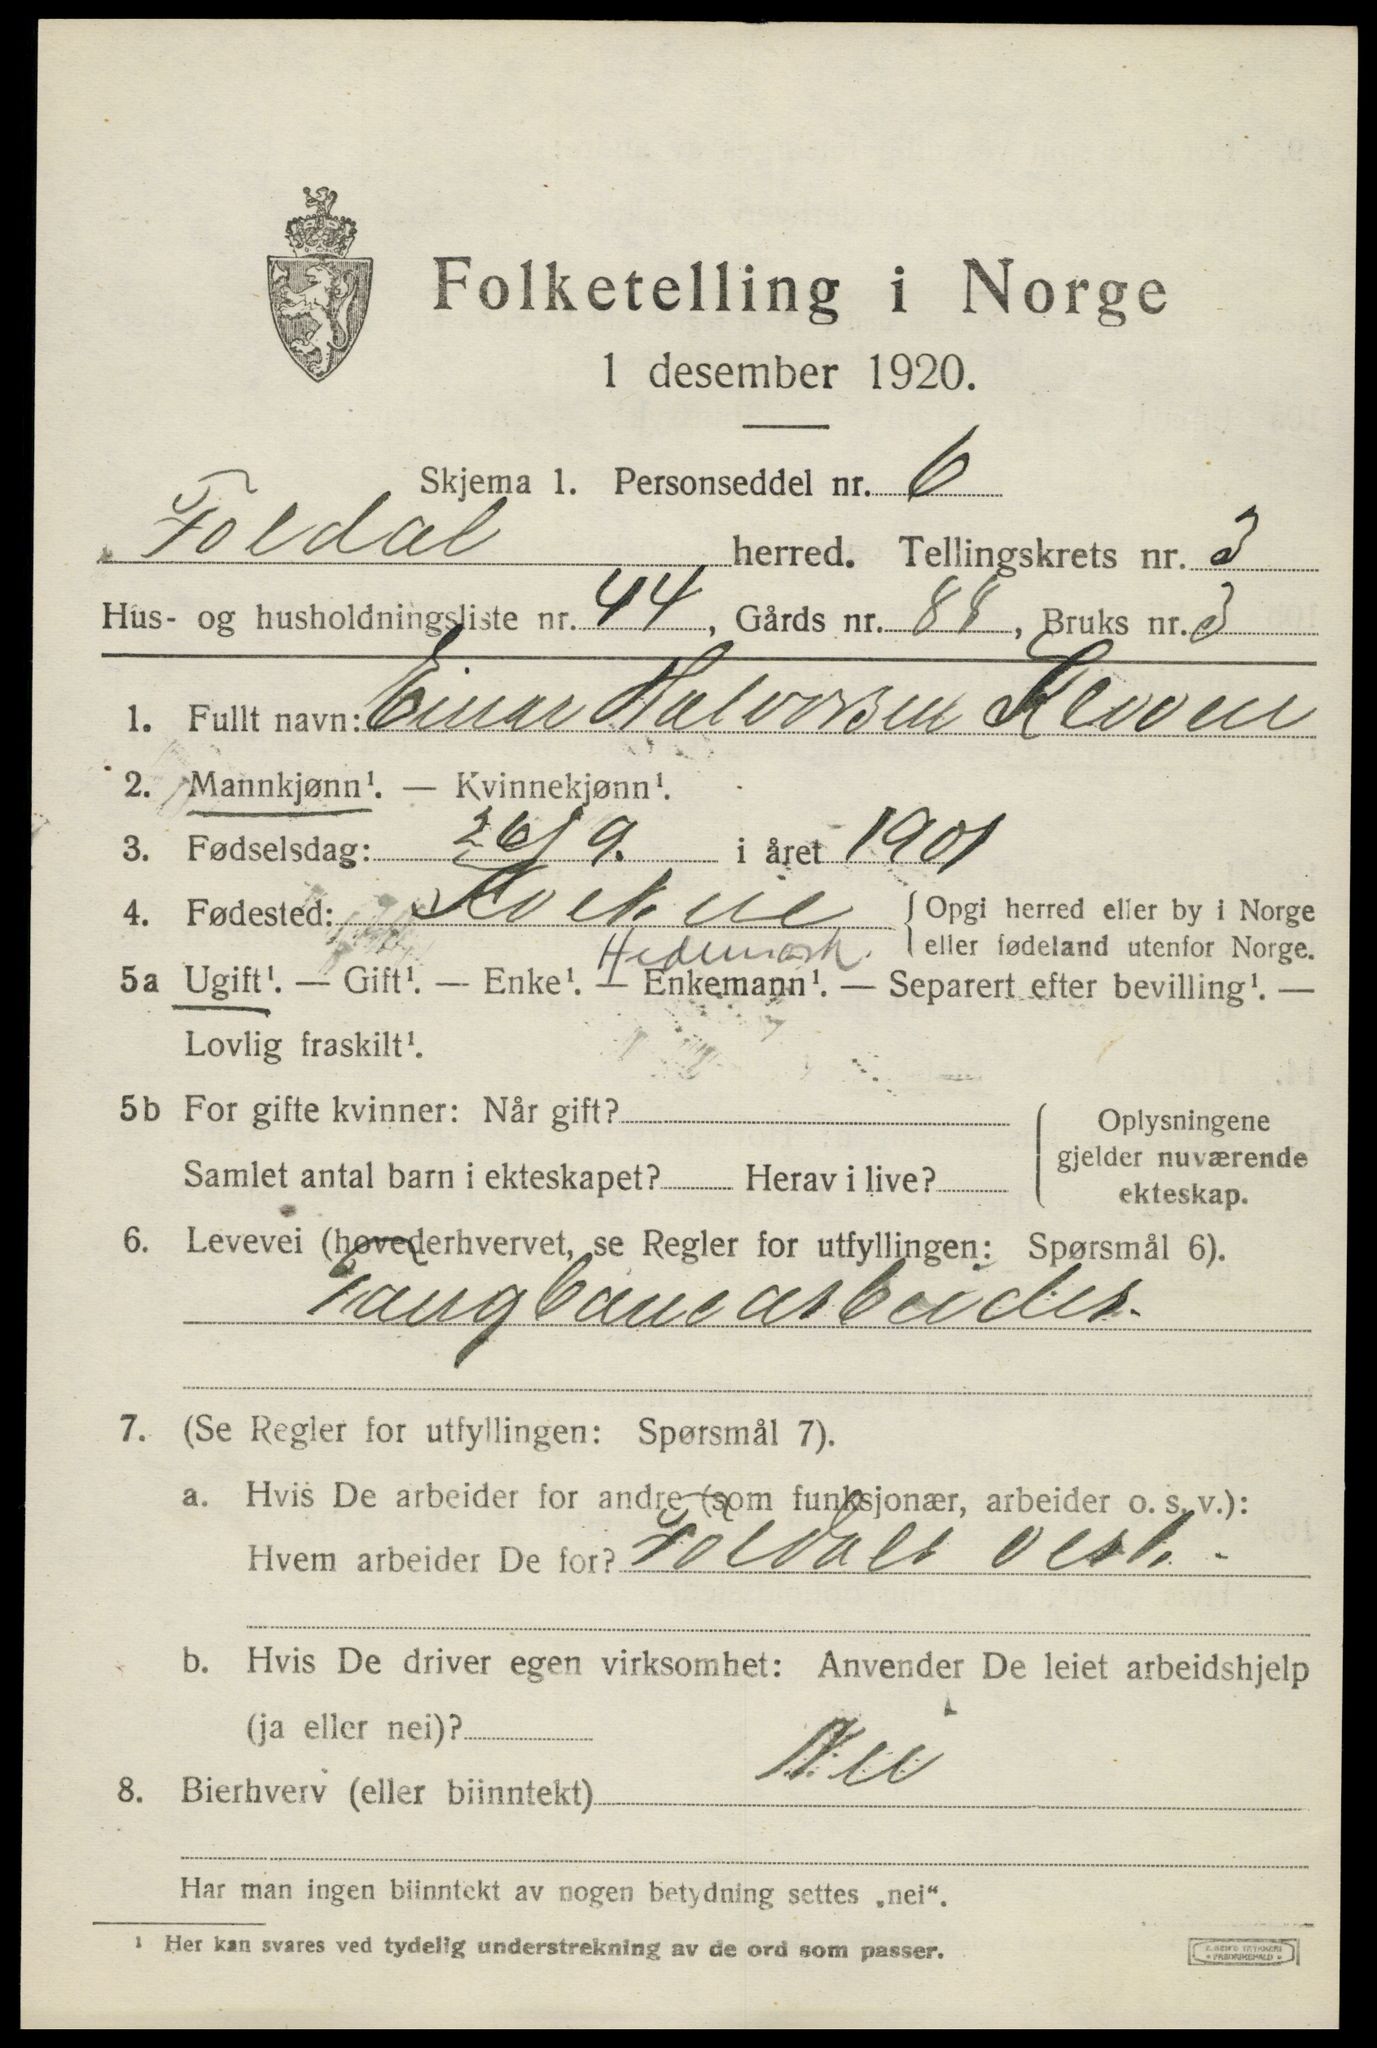 Folketelling i Norge
1 desember 1920.
Skjema 1. Personseddel nr. 6
Foldal herred. Tellingskrets nr. 3
Hus- og husholdningsliste nr. 44, Gårds nr. 88, Bruks nr. 3
1. Fullt navn: Einar Halvorsen Kleven
2. Mannkjønn¹. — Kvinnekjønn¹.
3. Fødselsdag: 26/9. i året 1901
4. Fødested: { Opgi herred eller by i Norge
eller fødeland utenfor Norge.
Hedemark.
5a Ugift¹. — Gift¹. — Enke¹. — Enkemann¹. — Separert efter bevilling¹. —
Lovlig fraskilt¹.
5b For gifte kvinner: Når gift?
Samlet antal barn i ekteskapet? Herav i live?
{ Oplysningene
gjelder nuværende
ekteskap.
6. Levevei (hovederhvervet, se Regler for utfyllingen: Spørsmål 6).
Taugbanearbeider.
7. (Se Regler for utfyllingen: Spørsmål 7).
a. Hvis De arbeider for andre (som funksjonær, arbeider o. s. v.):
Hvem arbeider De for? Foldals verk.
b. Hvis De driver egen virksomhet: Anvender De leiet arbeidshjelp
(ja eller nei)?
8. Bierhverv (eller biinntekt) Nei
Har man ingen biinntekt av nogen betydning settes „nei“.
¹ Her kan svares ved tydelig understrekning av de ord som passer.